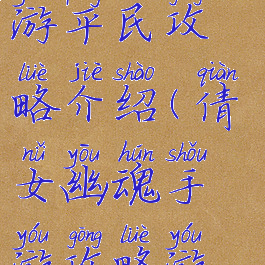 游平民攻
lüè jiè shào qiàn
略介绍(倩
nǚ yōu hún shǒu
女幽魂手
yóu gōng lüè yóu